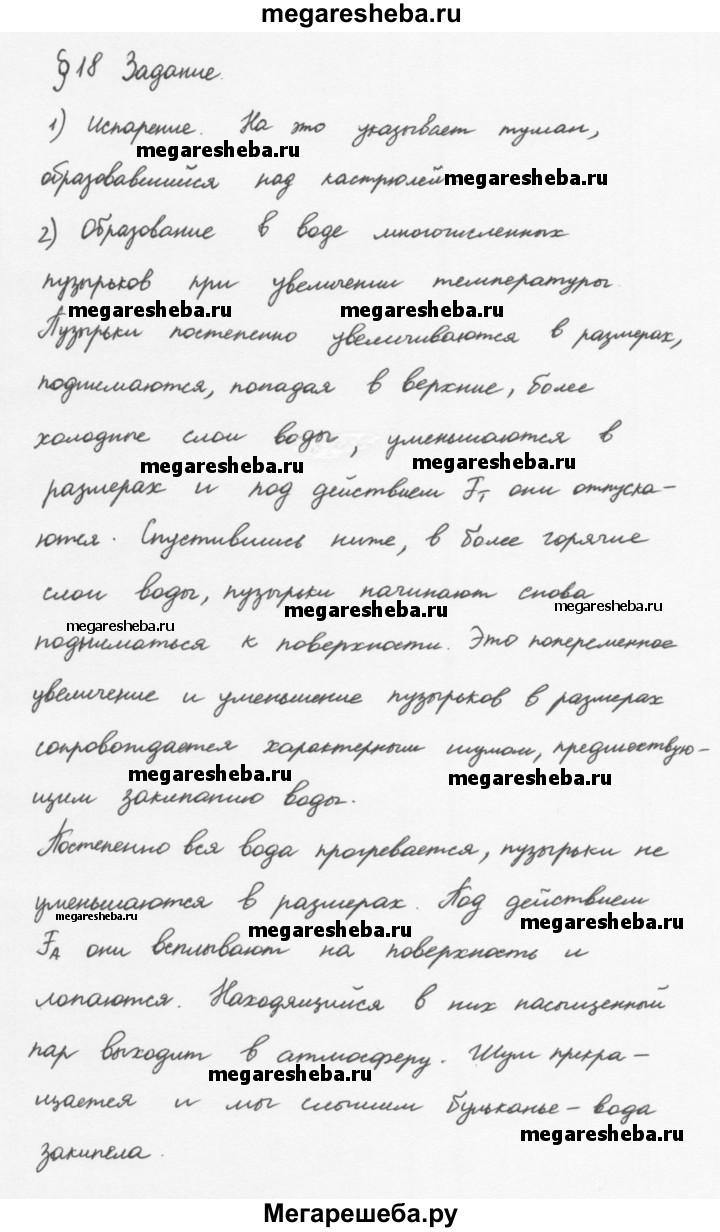 megaresheba.ru
§18 Задание.
1) Испарение. На это указывает туман,
megaresheba.ru
образовавшийся над кастрюлей megaresheba.ru
2) Образование в воде многочисленных
пузырьков при увеличении температуры.
megaresheba.ru megaresheba.ru
Пузырьки постепенно увеличиваются в размерах,
поднимаются, попадая в верхние, более
холодные слои воды, уменьшаются в
megaresheba.ru megaresheba.ru
размерах и под действием Fт они опуска-
ются. Спустившись ниже, в более горячие
слои воды, пузырьки начинают снова
megaresheba.ru megaresheba.ru
megaresheba.ru
подниматься к поверхности. Это попеременное
увеличение и уменьшение пузырьков в размерах
сопровождается характерным шумом, предшествую-
megaresheba.ru megaresheba.ru
щим закипанию воды.
Постепенно вся вода прогревается, пузырьки не
уменьшаются в размерах. Под действием
megaresheba.ru megaresheba.ru megaresheba.ru
FА они всплывают на поверхность и
лопаются. Находящийся в них насыщенный
пар выходит в атмосферу. Шум прекра-
megaresheba.ru
щается и мы слышим бульканье – вода
megaresheba.ru
закипела.
Мегарешеба.ру